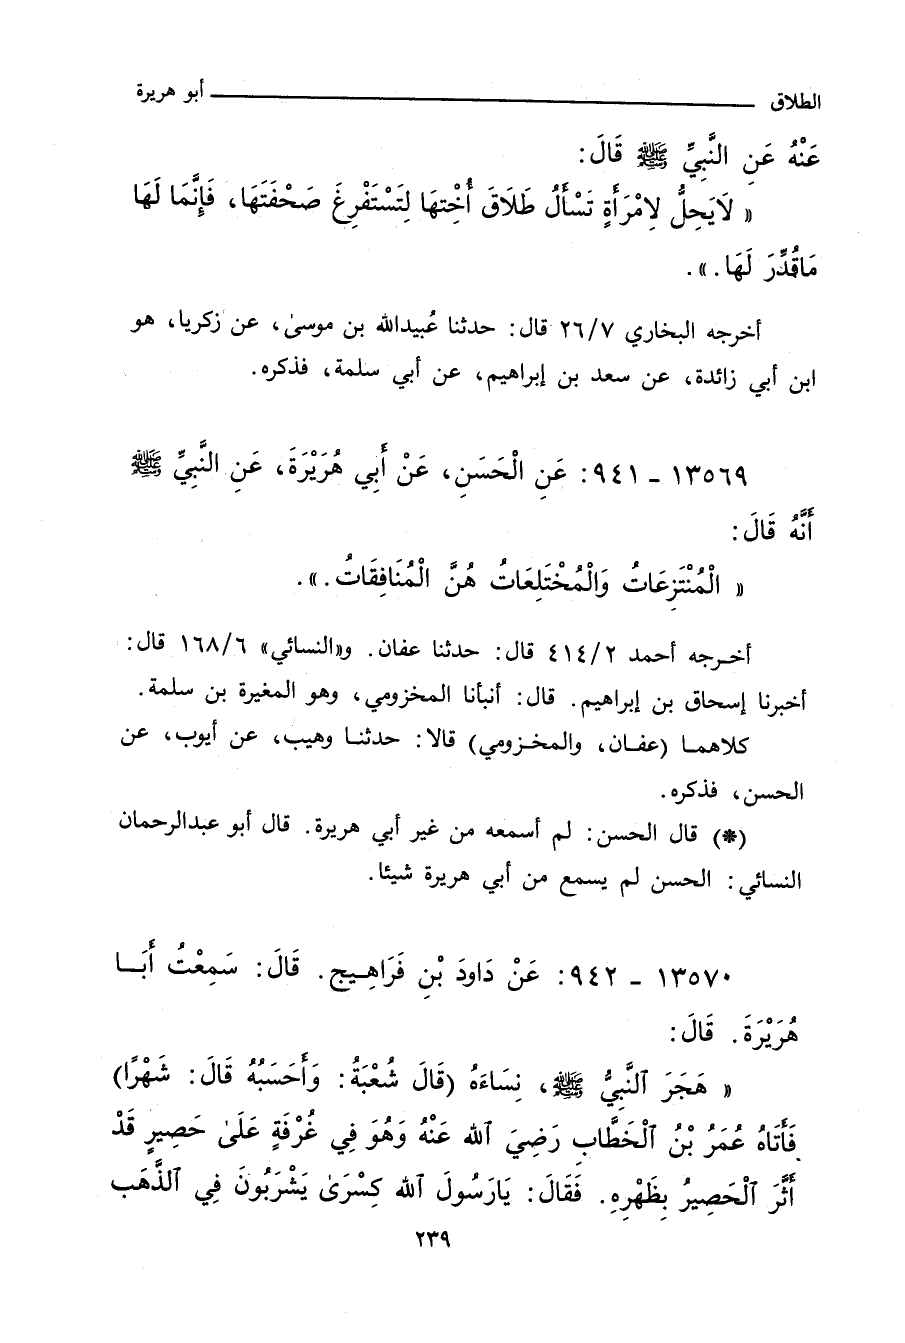 الطلاق ـــــــــــ أبو هريرة
عَنْهُ عَنِ النَّبِيِّ ﷺ قَالَ:
« لَايَحِلُّ لِامْرَأَةٍ تَسْأَلُ طَلَاقَ أُخْتِهَا لِتَسْتَفْرِغَ صَحْفَتَهَا، فَإِنَّمَا لَهَا
مَاقُدِّرَ لَهَا.».
أخرجه البخاري ٢٦/٧ قال: حدثنا عُبيدالله بن موسىٰ، عن زكريا، هو
ابن أبي زائدة، عن سعد بن إبراهيم، عن أبي سلمة، فذكره.
١٣٥٦٩ - ٩٤١: عَنِ الْحَسَنِ، عَنْ أَبِي هُرَيْرَةَ، عَنِ النَّبِيِّ ﷺ
أَنَّهُ قَالَ:
« الْمُنْتَزِعَاتُ وَالْمُخْتَلِعَاتُ هُنَّ الْمُنَافِقَاتُ.».
أخرجه أحمد ٤١٤/٢ قال: حدثنا عفان. و«النسائي» ١٦٨/٦ قال:
أخبرنا إسحاق بن إبراهيم. قال: أنبأنا المخزومي، وهو المغيرة بن سلمة.
كلاهما (عفان، والمخزومي) قالا: حدثنا وهيب، عن أيوب، عن
الحسن، فذكره.
(*) قال الحسن: لم أسمعه من غير أبي هريرة. قال أبو عبدالرحمان
النسائي: الحسن لم يسمع من أبي هريرة شيئا.
١٣٥٧٠ - ٩٤٢: عَنْ دَاودَ بْنِ فَرَاهِيج. قَالَ: سَمِعْتُ أَبَا
هُرَيْرَةَ. قَالَ:
« هَجَرَ ٱلنَّبِيُّ ﷺ، نِسَاءَهُ (قَالَ شُعْبَةُ: وَأَحَسَبُهُ قَالَ: شَهْرًا)
فَأَتَاهُ عُمَرُ بْنُ ٱلْخَطَّابِ رَضِيَ ٱلله عَنْهُ وَهُوَ فِي غُرْفَةٍ عَلَىٰ حَصِيرٍ قَدْ
أَثَّرَ ٱلْحَصِيرُ بِظَهْرِهِ. فَقَالَ: يَارَسُولَ ٱلله كِسْرَىٰ يَشْرَبُونَ فِي ٱلذَّهَب
٢٣٩